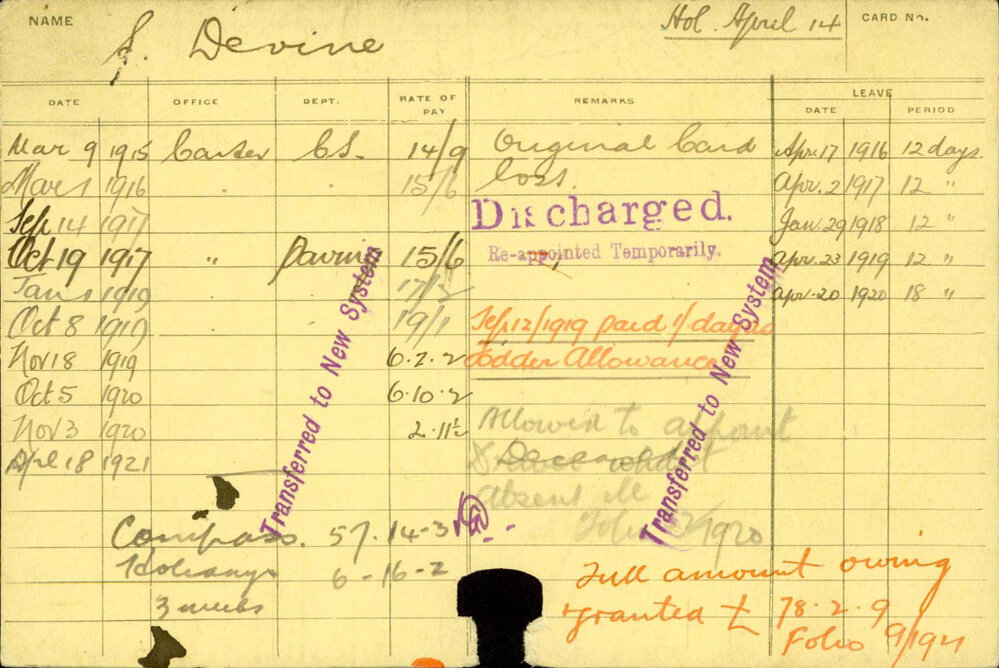 NAME
S. Devine
Hol. April 14
CARD No.
DATE OFFICE DEPT. RATE OF PAY REMARKS LEAVE
DATE PERIOD
Mar 9 1915 Carter CS. 14/9 Original Card Apr. 17 1916 12 days.
Mar 1 1916 " " 15/6 loss. Apr. 2 1917 12 "
Sep 14 1917 Discharged. Jan. 29 1918 12 "
Oct 19 1917 " Paving 15/6 Re-appointed Temporarily. Apr. 23 1919 12 "
Jan 1 1919 17/2 Apr. 20 1920 18 "
Oct 8 1919 19/1 Sep 12/1919 paid 1/ day as
Nov 18 1919 6.2.2 Fodder Allowance
Oct 5 1920 6.10.2
Nov 3 1920 2.11½ Allowed to appoint
Apl 18 1921 Deceased whilst
absent ill
1920
Transferred to New System
Transferred to New System
Compass. 57.14-3
Holidays 6-16-2
3 weeks
Full amount owing
granted £ 78.2.9
Folio 9/1921